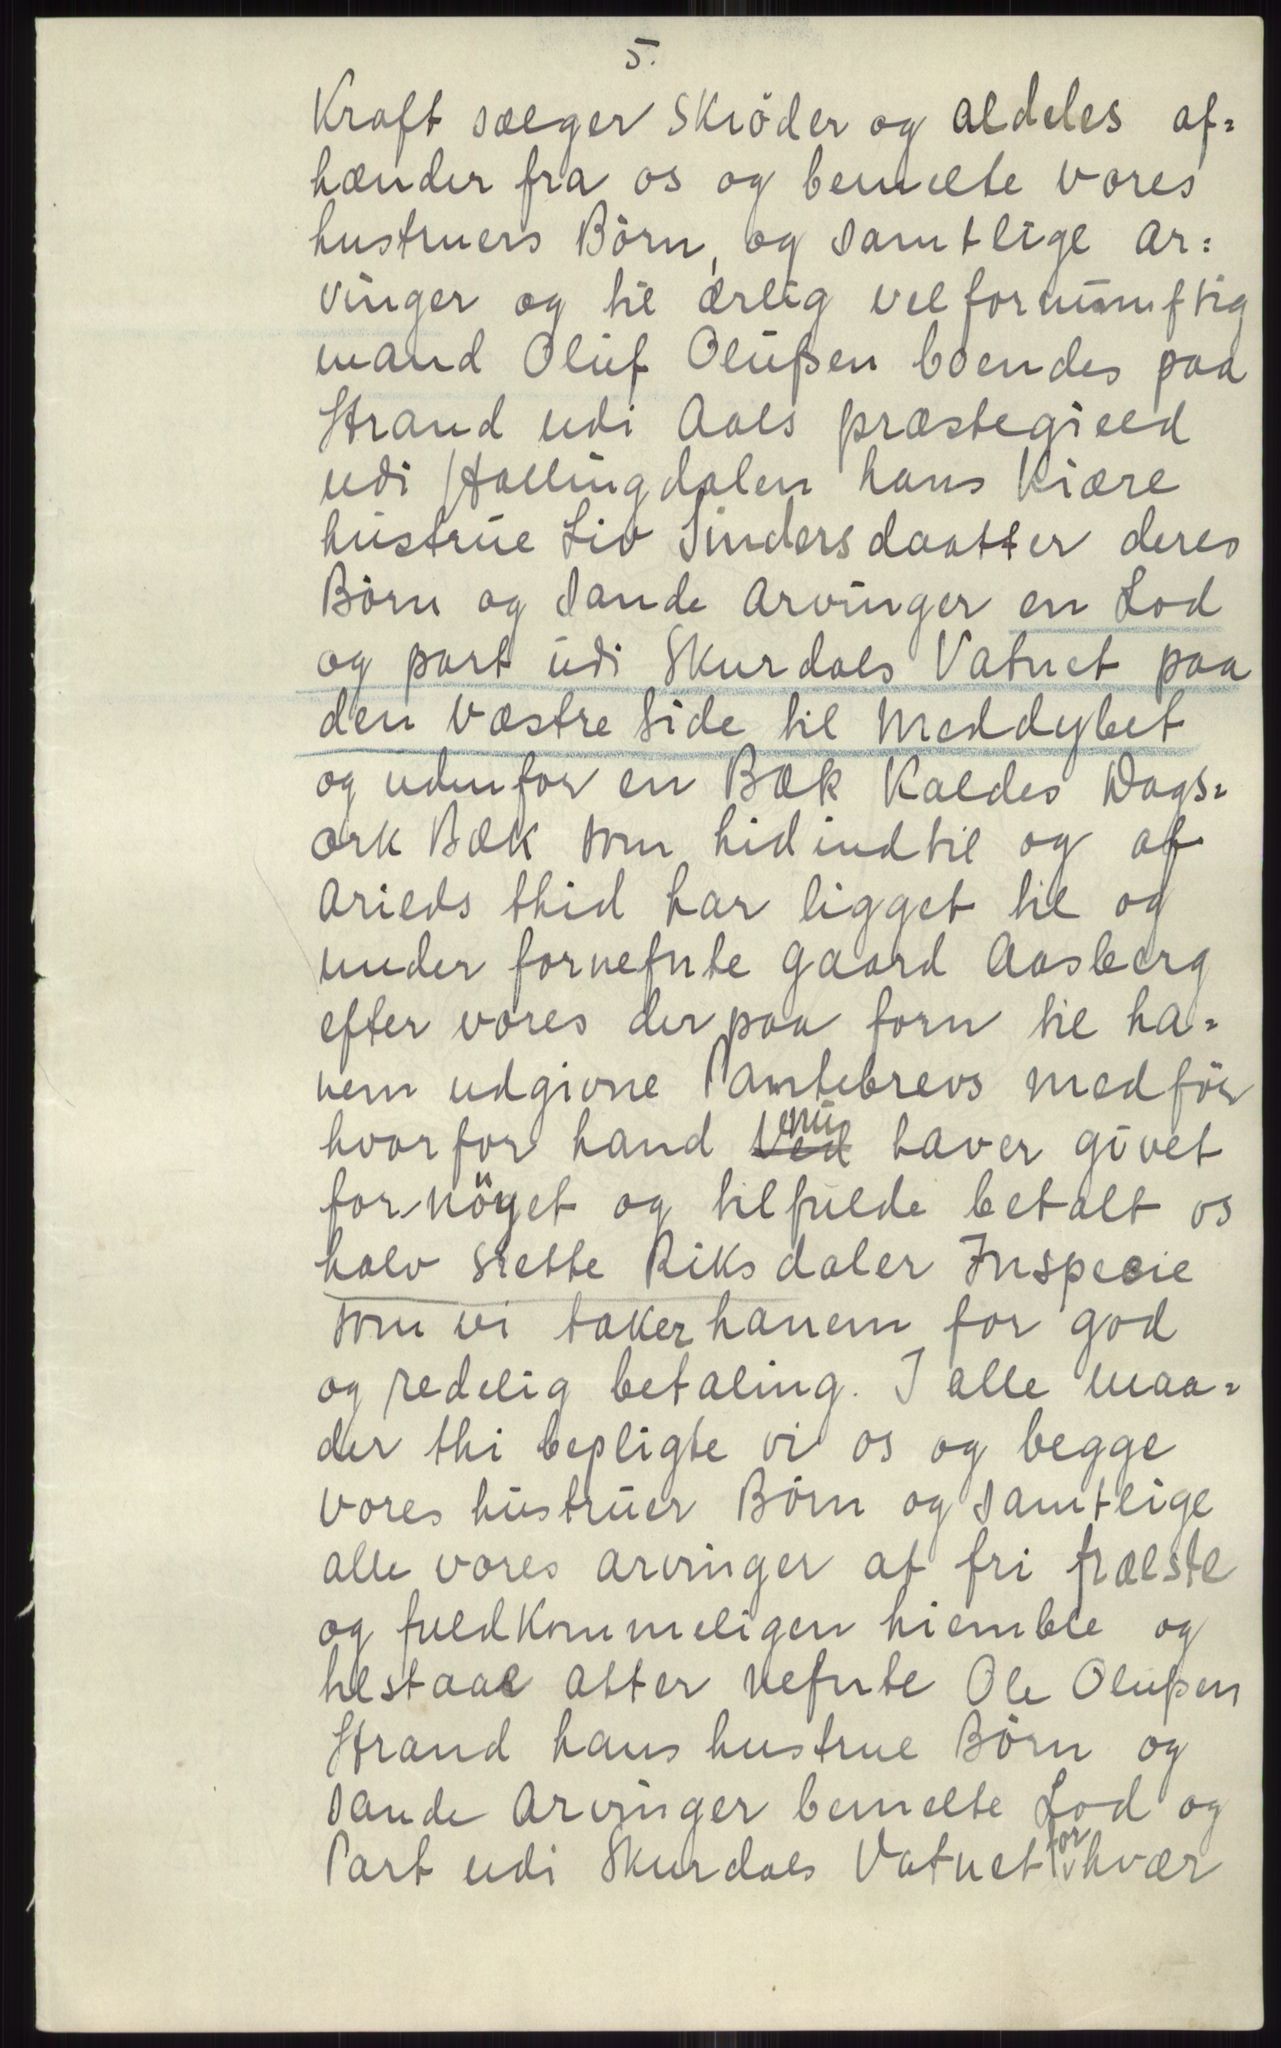 5.
Kraft sælger Skiöder og aldeles af=
hænder fra os og bemelte vores
hustruers Börn, og samtlige ar=
vinger og til ærlig velfornümftig
mand Olüf Olüßen boendes paa
Strand udi Aals præstegield
udi Hallingdalen hans Kiære
hüstrüe Liv Sindersdaatter deres
Börn og sande arvinger en Lod
og part üdi Skurdals Vatnet paa
den væstre side til Meddybet
og udenfor en Bæk Kaldes Dags=
ork Bæk som hidindtil og af
arieds thid har ligget til og
under fornefnte gaard Aasberg
efter vores der paa forn til ha=
nem udgivne Pantebrevs medför
hvorfor hand Ved enü haver givet
fornöyet og tilfulde betalt os
halv siette Riksdaler Inspecie
som vi taker hanem for god
og redelig betaling. I alle maa=
der thi bepligte vi os og begge
vores hüstrüer Börn og samtlige
alle vores arvinger at fri frælste
og fuldkommeligen hiemble og
tilstaae atter nefnte Ole Olüßen
Strand hans hustrue Börn og
sande Arvinger bemelte Lod og
Part udi Skurdals Vatnet for hvær